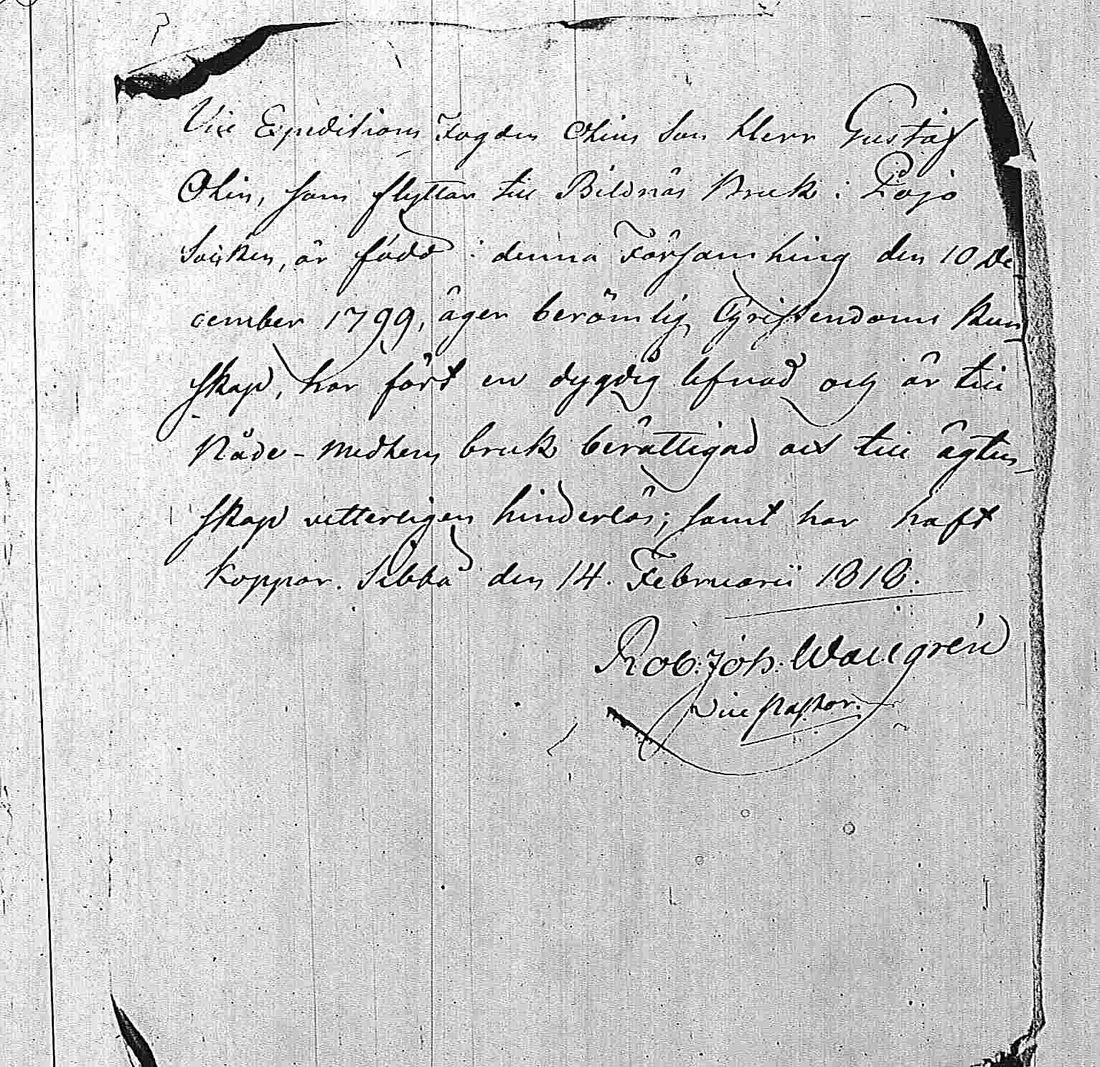 Vice Expeditions Fogden Ohins Son Herr Gustaf
Ohin, som flyttar till Billnäs Bruk i Pojo
Socken, är född i denna Församling den 10 De
cember 1799, äger berömlig Christendoms Kun
skap, har fört en dygdig lefnad och är till
Nåde-medlens bruk berättigad och till ägten
skap vetterligen hinderlös; samt har haft
Koppor. Sibbå den 14. Februarii 1818.
Rob. Joh. Wallgrén
Vice Pastor.